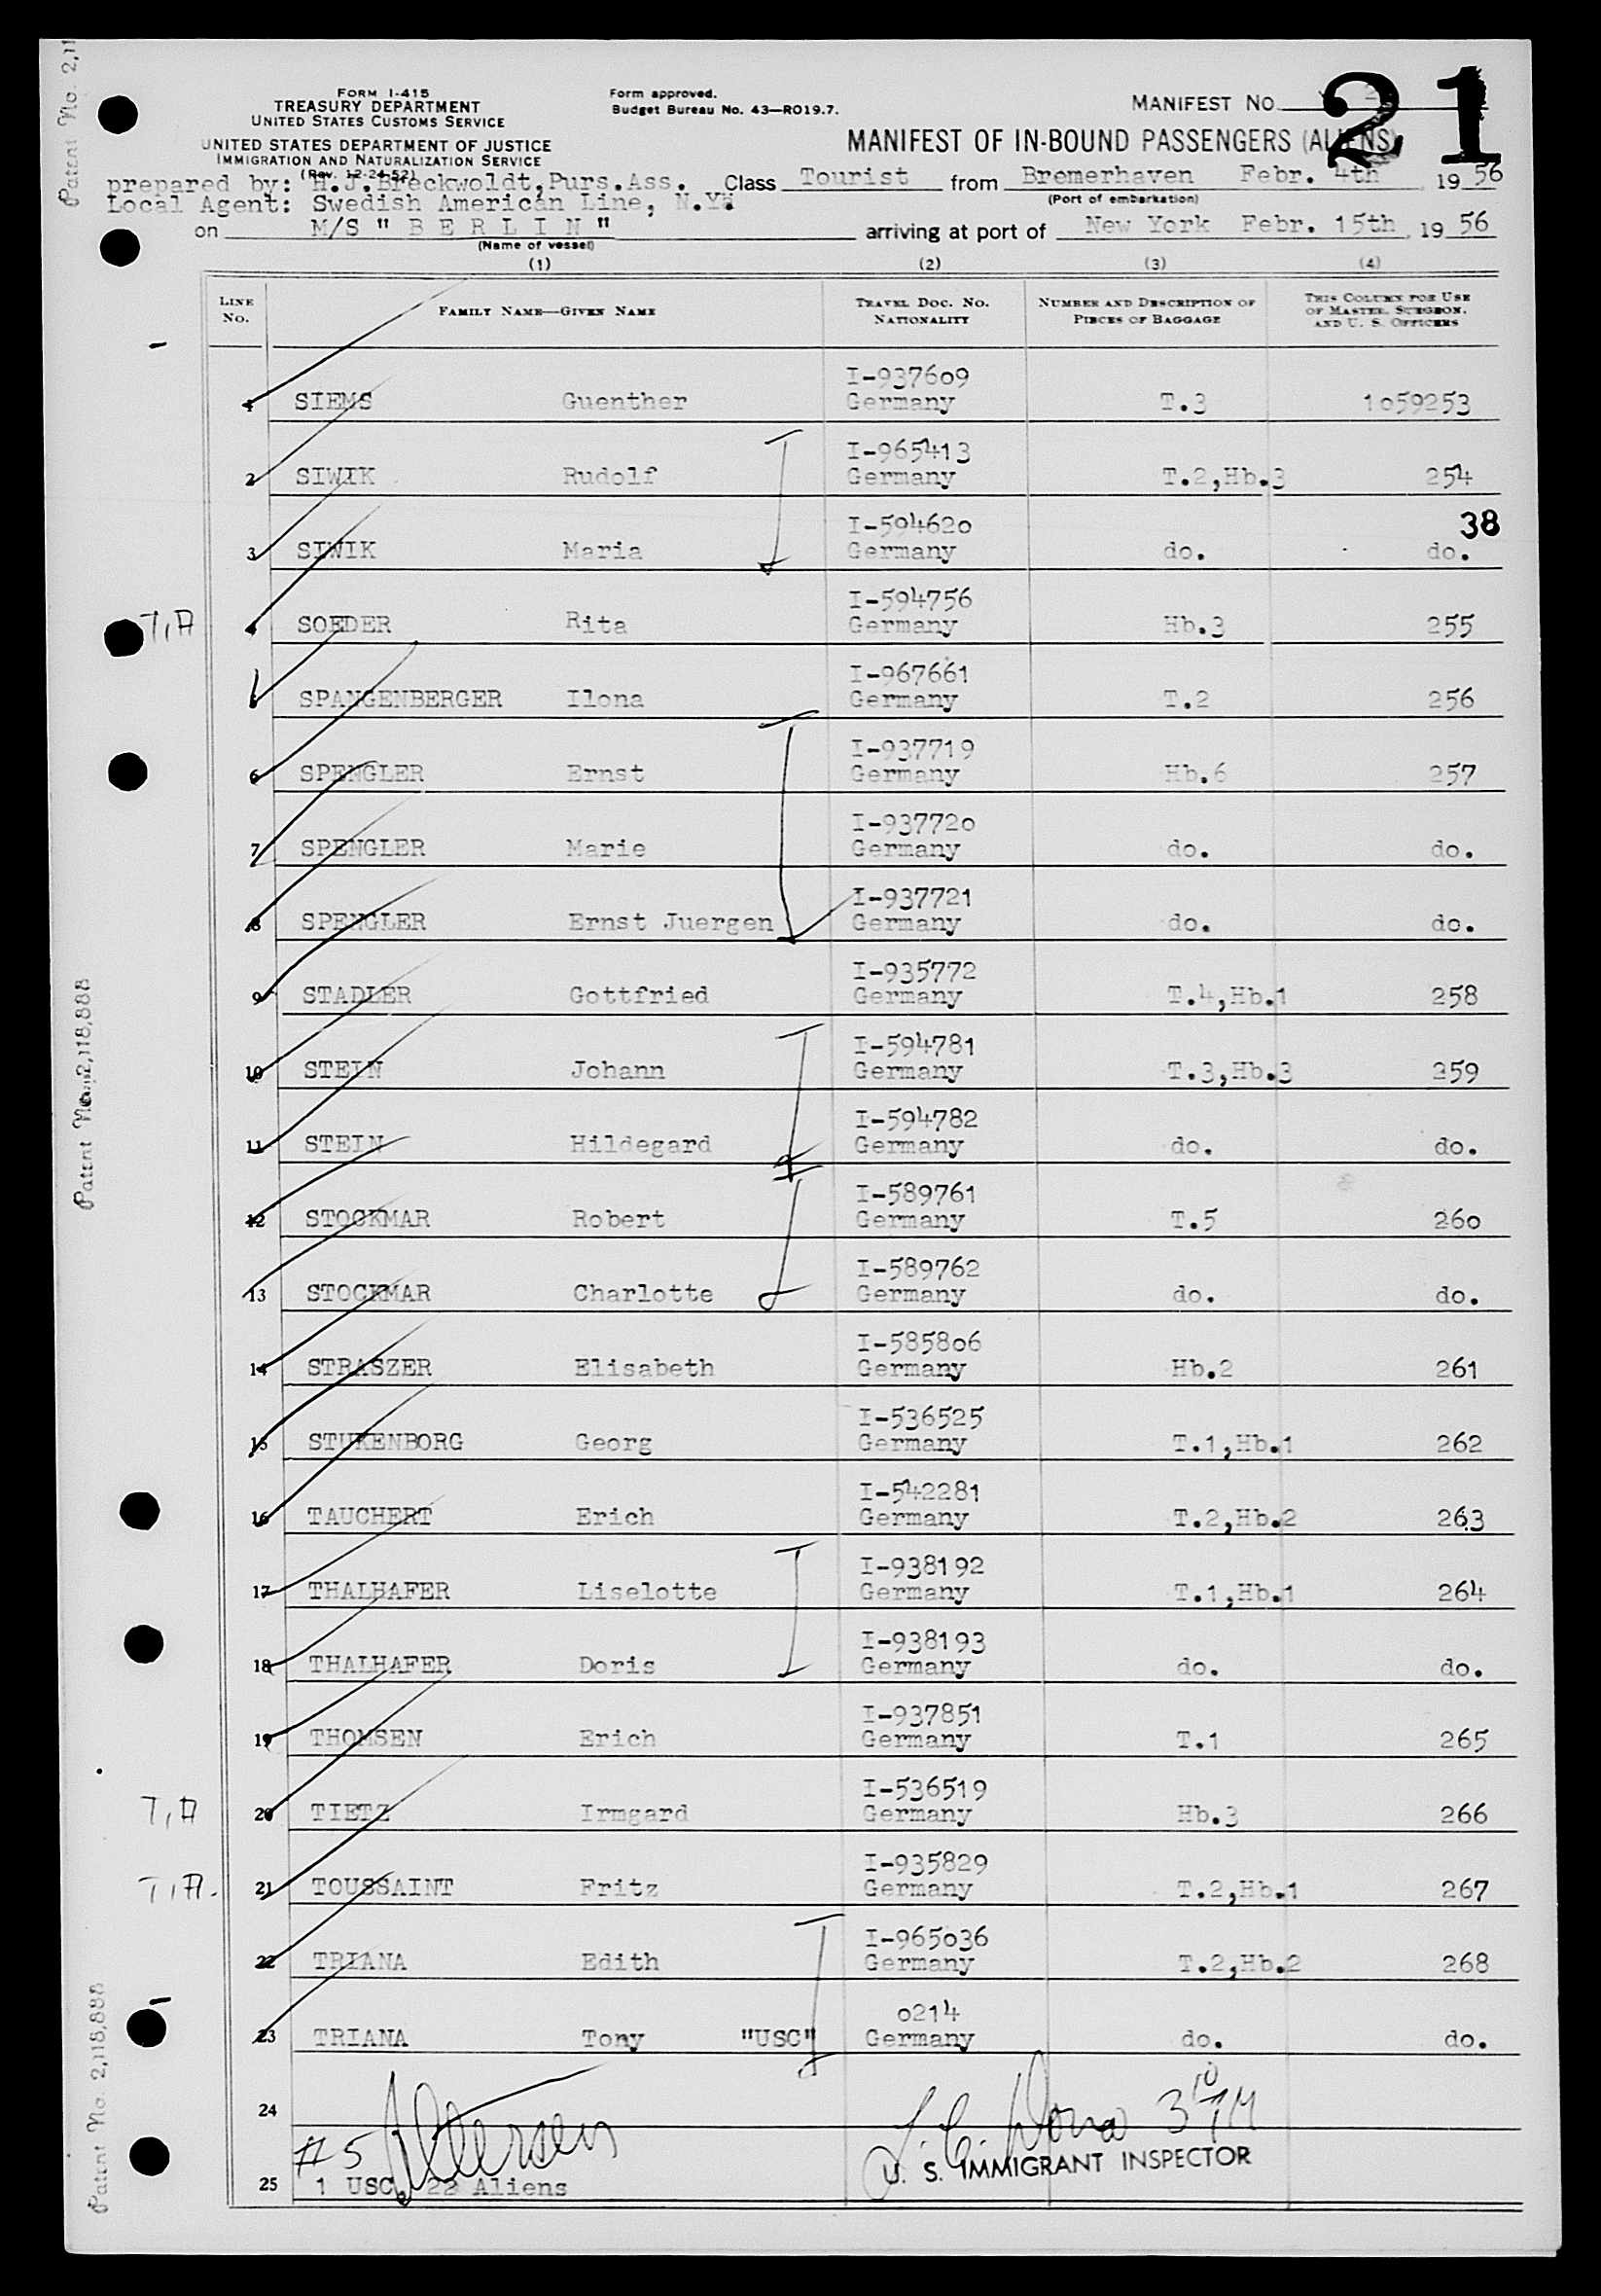 Patent No. 2,11
FORM I-415
TREASURY DEPARTMENT
UNITED STATES CUSTOMS SERVICE
UNITED STATES DEPARTMENT OF JUSTICE
IMMIGRATION AND NATURALIZATION SERVICE
(Rev. 12-24-52)
Form approved.
Budget Bureau No. 43—RO19.7.
MANIFEST NO. 21
MANIFEST OF IN-BOUND PASSENGERS (ALIENS)
prepared by: H.J.Breckwoldt,Purs.Ass. Class Tourist from Bremerhaven Febr. 4th, 1956
(Port of embarkation)
Local Agent: Swedish American Line, N.Y.
on M/S " B E R L I N " arriving at port of New York Febr. 15th, 1956
(Name of vessel)
(1) (2) (3) (4)
LINE NO. FAMILY NAME—GIVEN NAME TRAVEL DOC. NO. NATIONALITY NUMBER AND DESCRIPTION OF PIECES OF BAGGAGE THIS COLUMN FOR USE OF MASTER, SURGEON, AND U. S. OFFICERS
I-937609
SIEMS Guenther Germany T.3 1059253
I-965413
2 SIWIK Rudolf Germany T.2,Hb.3 254
I-594620 38
3 SIWIK Maria Germany do. do.
I-594756
T,A 4 SOEDER Rita Germany Hb.3 255
I-967661
SPANGENBERGER Ilona Germany T.2 256
I-937719
6 SPENGLER Ernst Germany Hb.6 257
I-937720
7 SPENGLER Marie Germany do. do.
I-937721
8 SPENGLER Ernst Juergen Germany do. do.
I-935772
9 STADLER Gottfried Germany T.4,Hb.1 258
I-594781
10 STEIN Johann Germany T.3,Hb.3 259
I-594782
11 STEIN Hildegard Germany do. do.
I-589761
12 STOCKMAR Robert Germany T.5 260
I-589762
13 STOCKMAR Charlotte Germany do. do.
I-585806
14 STRASZER Elisabeth Germany Hb.2 261
I-536525
15 STUKENBORG Georg Germany T.1,Hb.1 262
I-542281
16 TAUCHERT Erich Germany T.2,Hb.2 263
I-938192
17 THALHAFER Liselotte Germany T.1,Hb.1 264
I-938193
18 THALHAFER Doris Germany do. do.
I-937851
19 THOMSEN Erich Germany T.1 265
I-536519
T,A 20 TIETZ Irmgard Germany Hb.3 266
I-935829
T,A. 21 TOUSSAINT Fritz Germany T.2,Hb.1 267
I-965036
22 TRIANA Edith Germany T.2,Hb.2 268
0214
23 TRIANA Tony "USC" Germany do. do.
24
# 5
U. S. IMMIGRANT INSPECTOR
25 1 USC, 22 Aliens
Patent No. 2,118,888
Patent No. 2,118,888